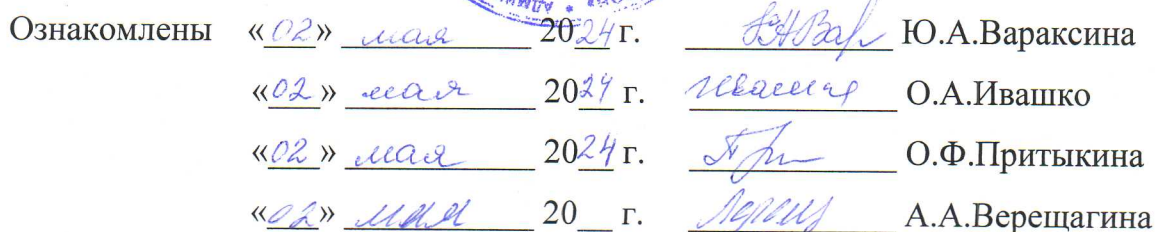 Ознакомлены «02» мая 2024 г. Ю.А.Вараксина
«02» мая 2024 г. О.А.Ивашко
«02» мая 2024 г. О.Ф.Притыкина
«02» мая 20__ г. А.А.Верещагина